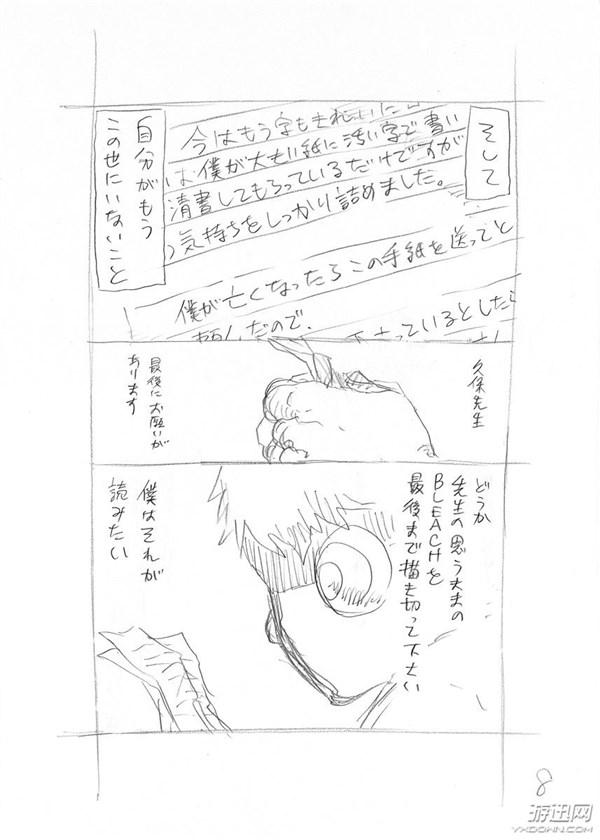 そして
今はもう字もきれいに
は僕が大きい紙に汚い字で書い
清書してもらっているだけですが
気持ちをしっかり詰めました。
僕が亡くなったらこの手紙を送ってと
だので、
さっているとしたら
自分がもう
この世にいないこと
久保先生
最後にお願いが
あります
どうか
先生の思うままの
BLEACHを
最後まで描き切って下さい
僕はそれが
読みたい
8
游迅网
YXDOWN.COM